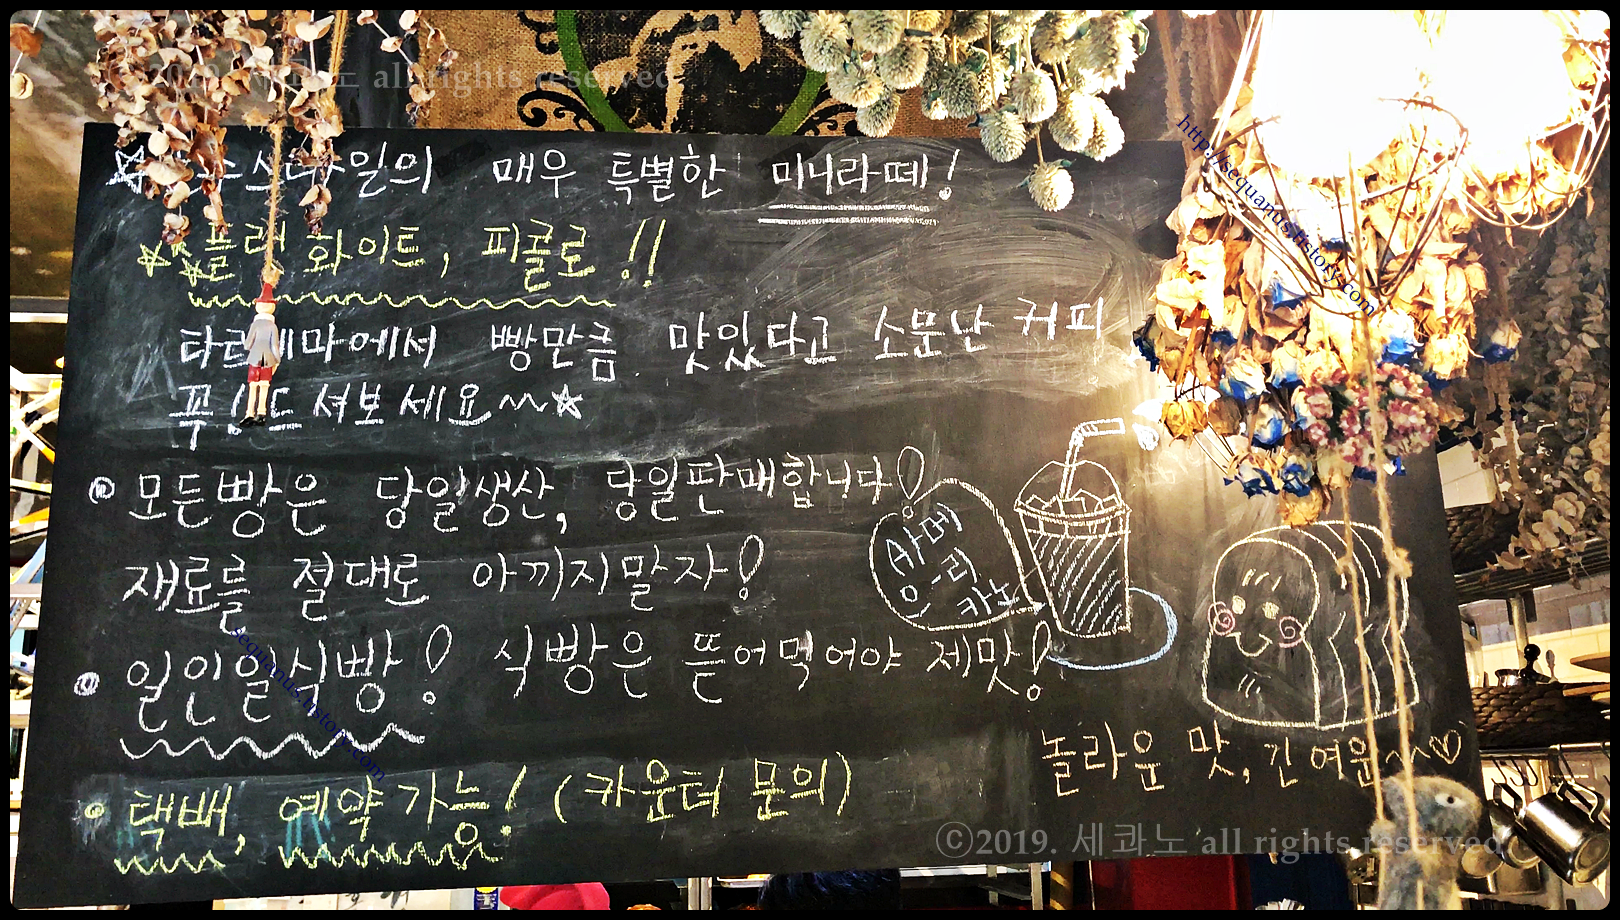 ©2019. 세콰노 all rights reserved
http://sequanus.tistory.com
일의 매우 특별한 미니라떼!
플랫 화이트, 피콜로!!
타르데마에서 빵만큼 맛있다고 소문난 커피
푸 셔보세요~~☆
모든빵은 당일생산, 당일판매합니다!
재료를 절대로 아끼지말자!
일인일식빵! 식빵은 뜯어먹어야 제맛!
택배, 예약가능! (카운터 문의)
아메
리
카노
놀라운 맛, 긴 여운~~♡
sequanus.tistory.com
©2019. 세콰노 all rights reserved